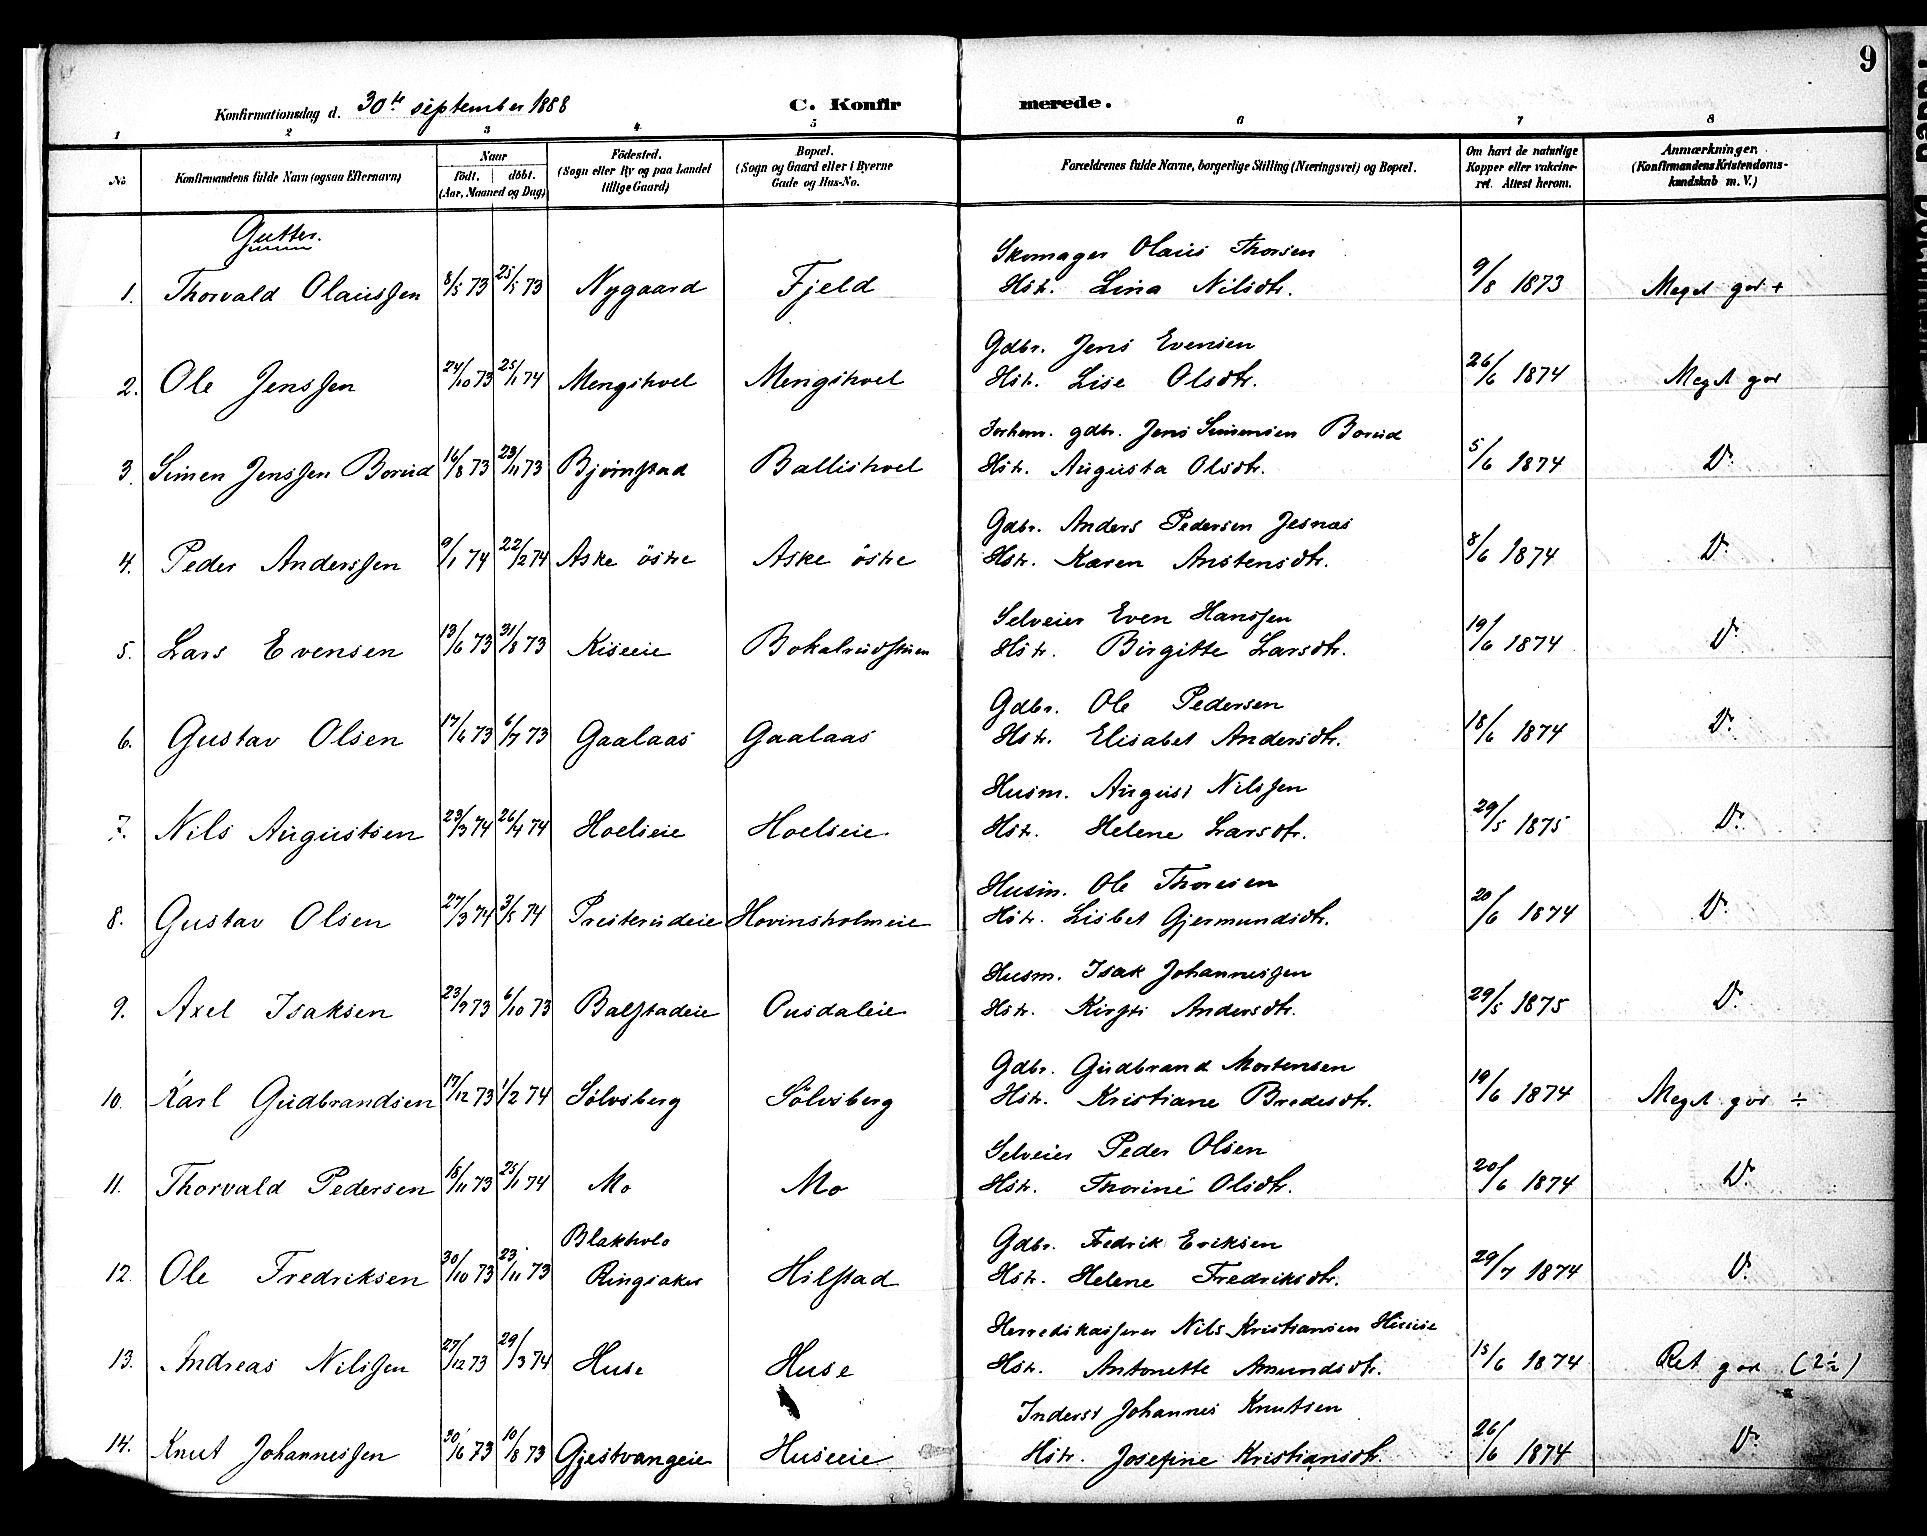 9
Konfirmationsdag d. 30te september 1888
C. Konfirmerede.
1 2 3 4 5 6 7 8
No
Konfirmandens fulde Navn (ogsaa Efternavn)
Naar
födt. döbt.
(Aar, Maaned og Dag)
Födested.
(Sogn eller By og paa Landet
tillige Gaard)
Bopæl.
(Sogn og Gaard eller i Byerne
Gade og Hus-No.
Forældrenes fulde Navne, borgerlige Stilling (Næringsvei) og Bopæl.
Om havt de naturlige
Kopper eller vakcine-
ret. Attest herom.
Anmærkninger,
(Konfirmandens Kristendoms-
kundskab m. V.)
Gutter.
Skomager Olaus Thorsen
1. Thorvald Olaussen 8/5 73 25/5 73 Nygaard Fjeld Hstr. Lina Nilsdtr. 9/8 1873 Meget god +
Gdbr. Jens Evensen
2. Ole Jenssen 24/10 73 25/1 74 Mengshoel Mengshoel Hstr. Lise Olsdtr. 26/6 1874 Meget god
Forhem. gdbr. Jens Simensen Borud
3. Simen Jenssen Borud 16/8 73 23/11 73 Bjørnstad Ballishoel Hstr. Augusta Olsdtr. 5/6 1874 Do
Gdbr. Anders Pedersen Jesnæs
4. Peder Anderssen 9/1 74 22/2 74 Aske östre Aske östre Hstr. Karen Anstensdtr. 8/6 1874 Do
Selveier Even Hanssen
5. Lars Evensen 13/6 73 31/8 73 Kiseeie Bokalrudstuen Hstr. Birgitte Larsdtr. 19/6 1874 Do
Gdbr. Ole Pedersen
6. Gustav Olsen 17/6 73 6/7 73 Gaalaas Gaalaas Hstr. Elisabet Andersdtr. 18/6 1874 Do
Husm. August Nilssen
7. Nils Augustsen 23/3 74 26/4 74 Hoelseie Hoelseie Hstr. Helene Larsdtr. 29/5 1875 Do
Husm. Ole Thoresen
8. Gustav Olsen 27/3 74 3/5 74 Presterudeie Hovinsholmeie Hstr. Lisbet Gjermundsdtr. 20/6 1874 Do
Husm. Isak Johannessen
9. Axel Isaksen 23/9 73 6/10 73 Balstadeie Ousdaleie Hstr. Kirsti Andersdtr. 29/5 1875 Do
Gdbr. Gudbrand Mortensen
10. Karl Gudbrandsen 17/12 73 1/2 74 Sölvsberg Sölvsberg Hstr. Kristiane Bredesdtr. 19/6 1874 Meget god ÷
Selveier Peder Olsen
11. Thorvald Pedersen 15/11 73 25/1 74 Mo Mo Hstr. Thorine Olsdtr. 20/6 1874 Do
Blakholo Gdbr. Fredrik Eriksen
12. Ole Fredriksen 30/10 73 23/11 73 Ringsaker Hilstad Hstr. Helene Fredriksdtr. 29/7 1874 Do
Herredskasserer Nils Kristiansen Huse
13. Andreas Nilssen 27/12 73 29/3 74 Huse Huse Hstr. Antonette Amundsdtr. 15/6 1874 Ret god (2½)
Inderst Johannes Knutsen
14. Knut Johannessen 30/6 73 10/8 73 Gjestvangeie Huseeie Hstr. Josefine Kristiansdtr. 26/6 1874 Do